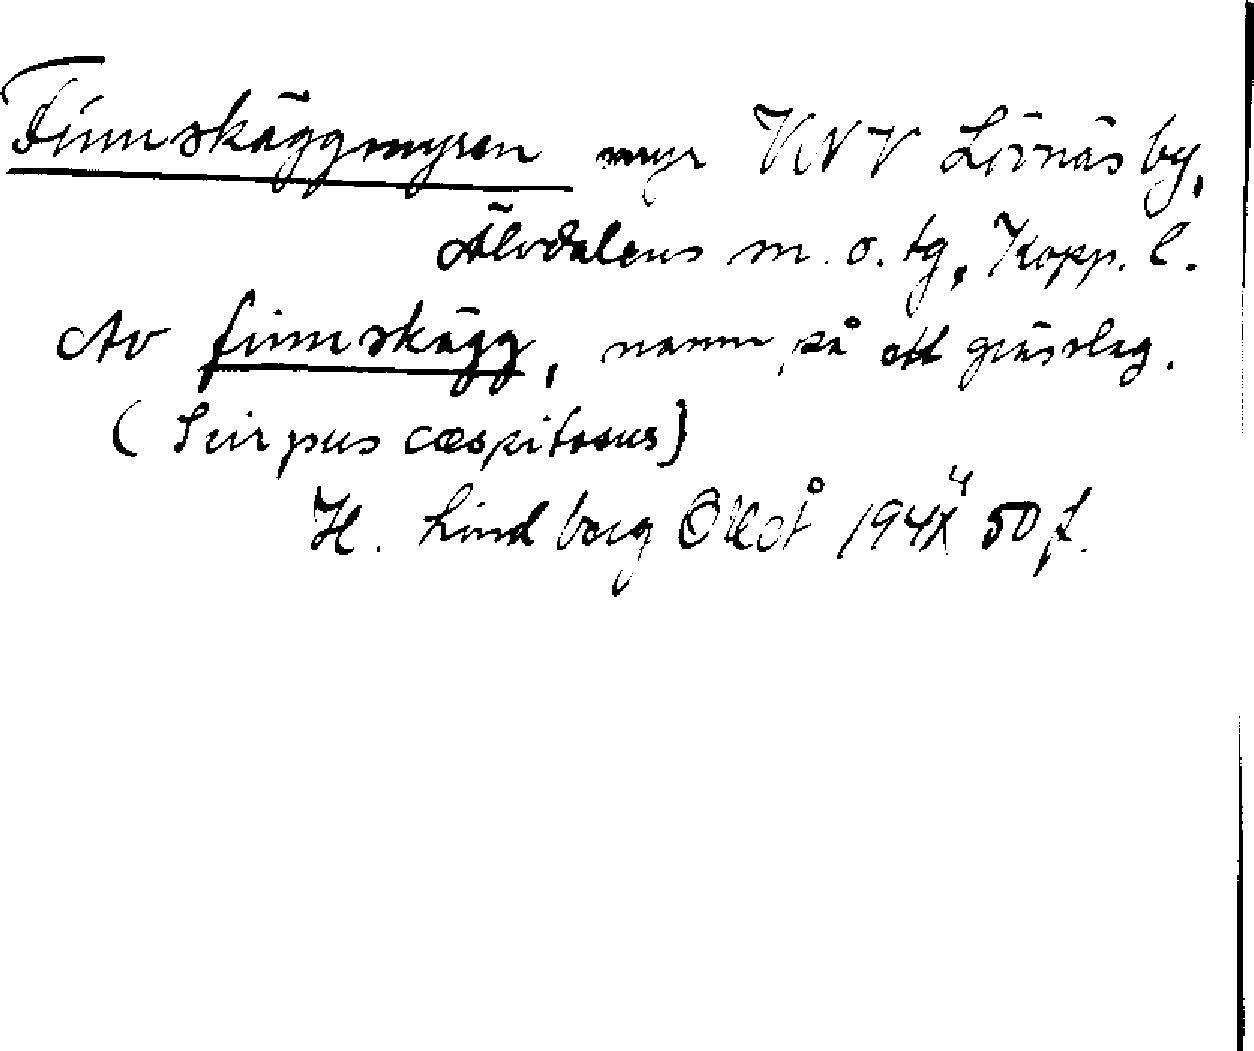 Finnskäggmyren myr VNV Lövnäs by,
Älvdalens sn. o. tg, Kopp. l.
Av finnskägg, namn på ett grässlag.
(Scirpus cæspitosus)
H. Lindberg 1944 50 f.